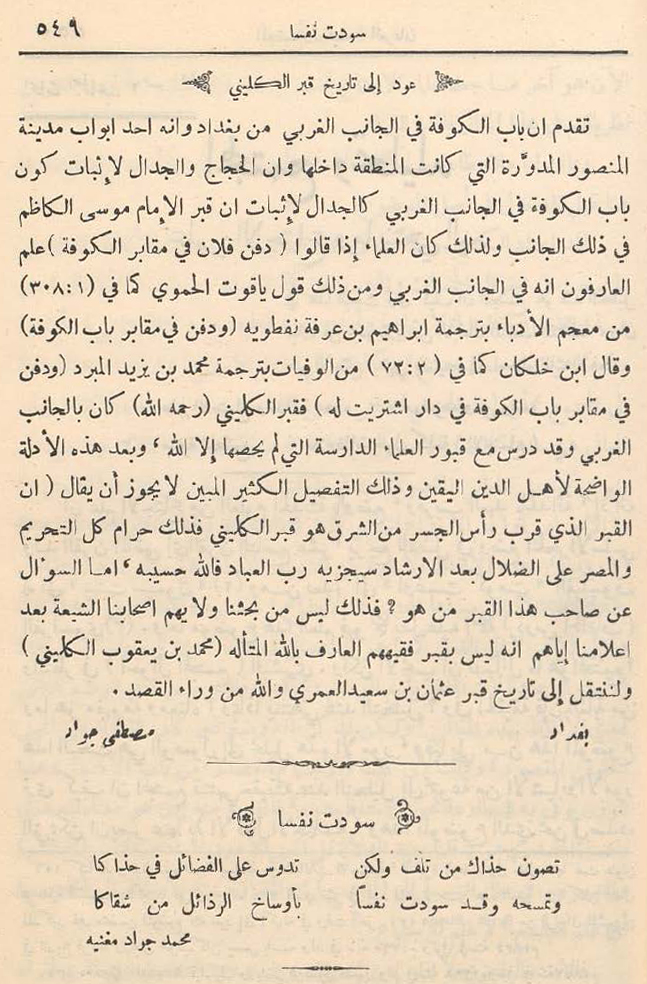 سودت نفسا ٥٤٩
عود إلى تاريخ قبر الكليني
تقدم ان باب الكوفة في الجانب الغربي من بغداد وانه احد ابواب مدينة
المنصور المدوَّرة التي كانت المنطقة داخلها وان الحجاج والجدال لإثبات كون
باب الكوفة في الجانب الغربي كالجدال لإثبات ان قبر الإمام موسى الكاظم
في ذلك الجانب ولذلك كان العلماء إذا قالوا ( دفن فلان في مقابر الكوفة ) علم
العارفون انه في الجانب الغربي ومن ذلك قول ياقوت الحموي كما في (١ : ٣٠٨)
من معجم الأدباء بترجمة ابراهيم بن عرفة نفطويه (ودفن في مقابر باب الكوفة)
وقال ابن خلكان كما في ( ٢ : ٧٢ ) من الوفيات بترجمة محمد بن يزيد المبرد (ودفن
في مقابر باب الكوفة في دار اشتريت له ) فقبر الكليني (رحمه الله) كان بالجانب
الغربي وقد درس مع قبور العلماء الدارسة التي لم يحصها إلا الله ، وبعد هذه الأدلة
الواضحة لأهل الدين اليقين وذلك التفصيل الكثير المبين لا يجوز أن يقال ( ان
القبر الذي قرب رأس الجسر من الشرق هو قبر الكليني فذلك حرام كل التحريم
والمصر على الضلال بعد الارشاد سيجزيه رب العباد فالله حسيبه ، اما السؤال
عن صاحب هذا القبر من هو ؟ فذلك ليس من بحثنا ولا يهم اصحابنا الشيعة بعد
اعلامنا إياهم انه ليس بقبر فقيههم العارف بالله المتأله (محمد بن يعقوب الكليني )
ولننتقل إلى تاريخ قبر عثمان بن سعيد العمري والله من وراء القصد .
بغداد مصطفى جواد
سودت نفسا
تصون حذاك من تلف ولكن تدوس على الفضائل في حذاكا
وتمسحه وقد سودت نفسًا بأوساخ الرذائل من شقاكا
محمد جواد مغنيه